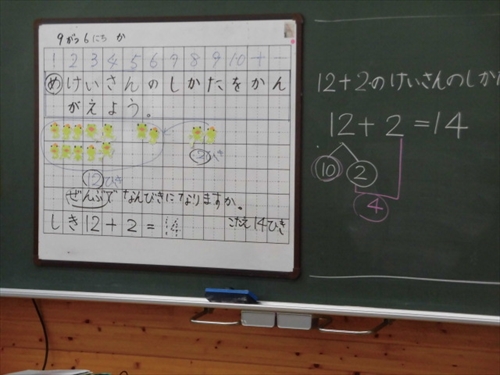 9がつ6にち か
1 2 3 4 5 6 7 8 9 10 + -
めけいさんのしかたをかん
がえよう。
12ひき
2ひき
ぜんぶで なんびきになりますか。
しき12+2=14 こたえ14ひき
12+2のけいさんのしか
12+2=14
10 2
4